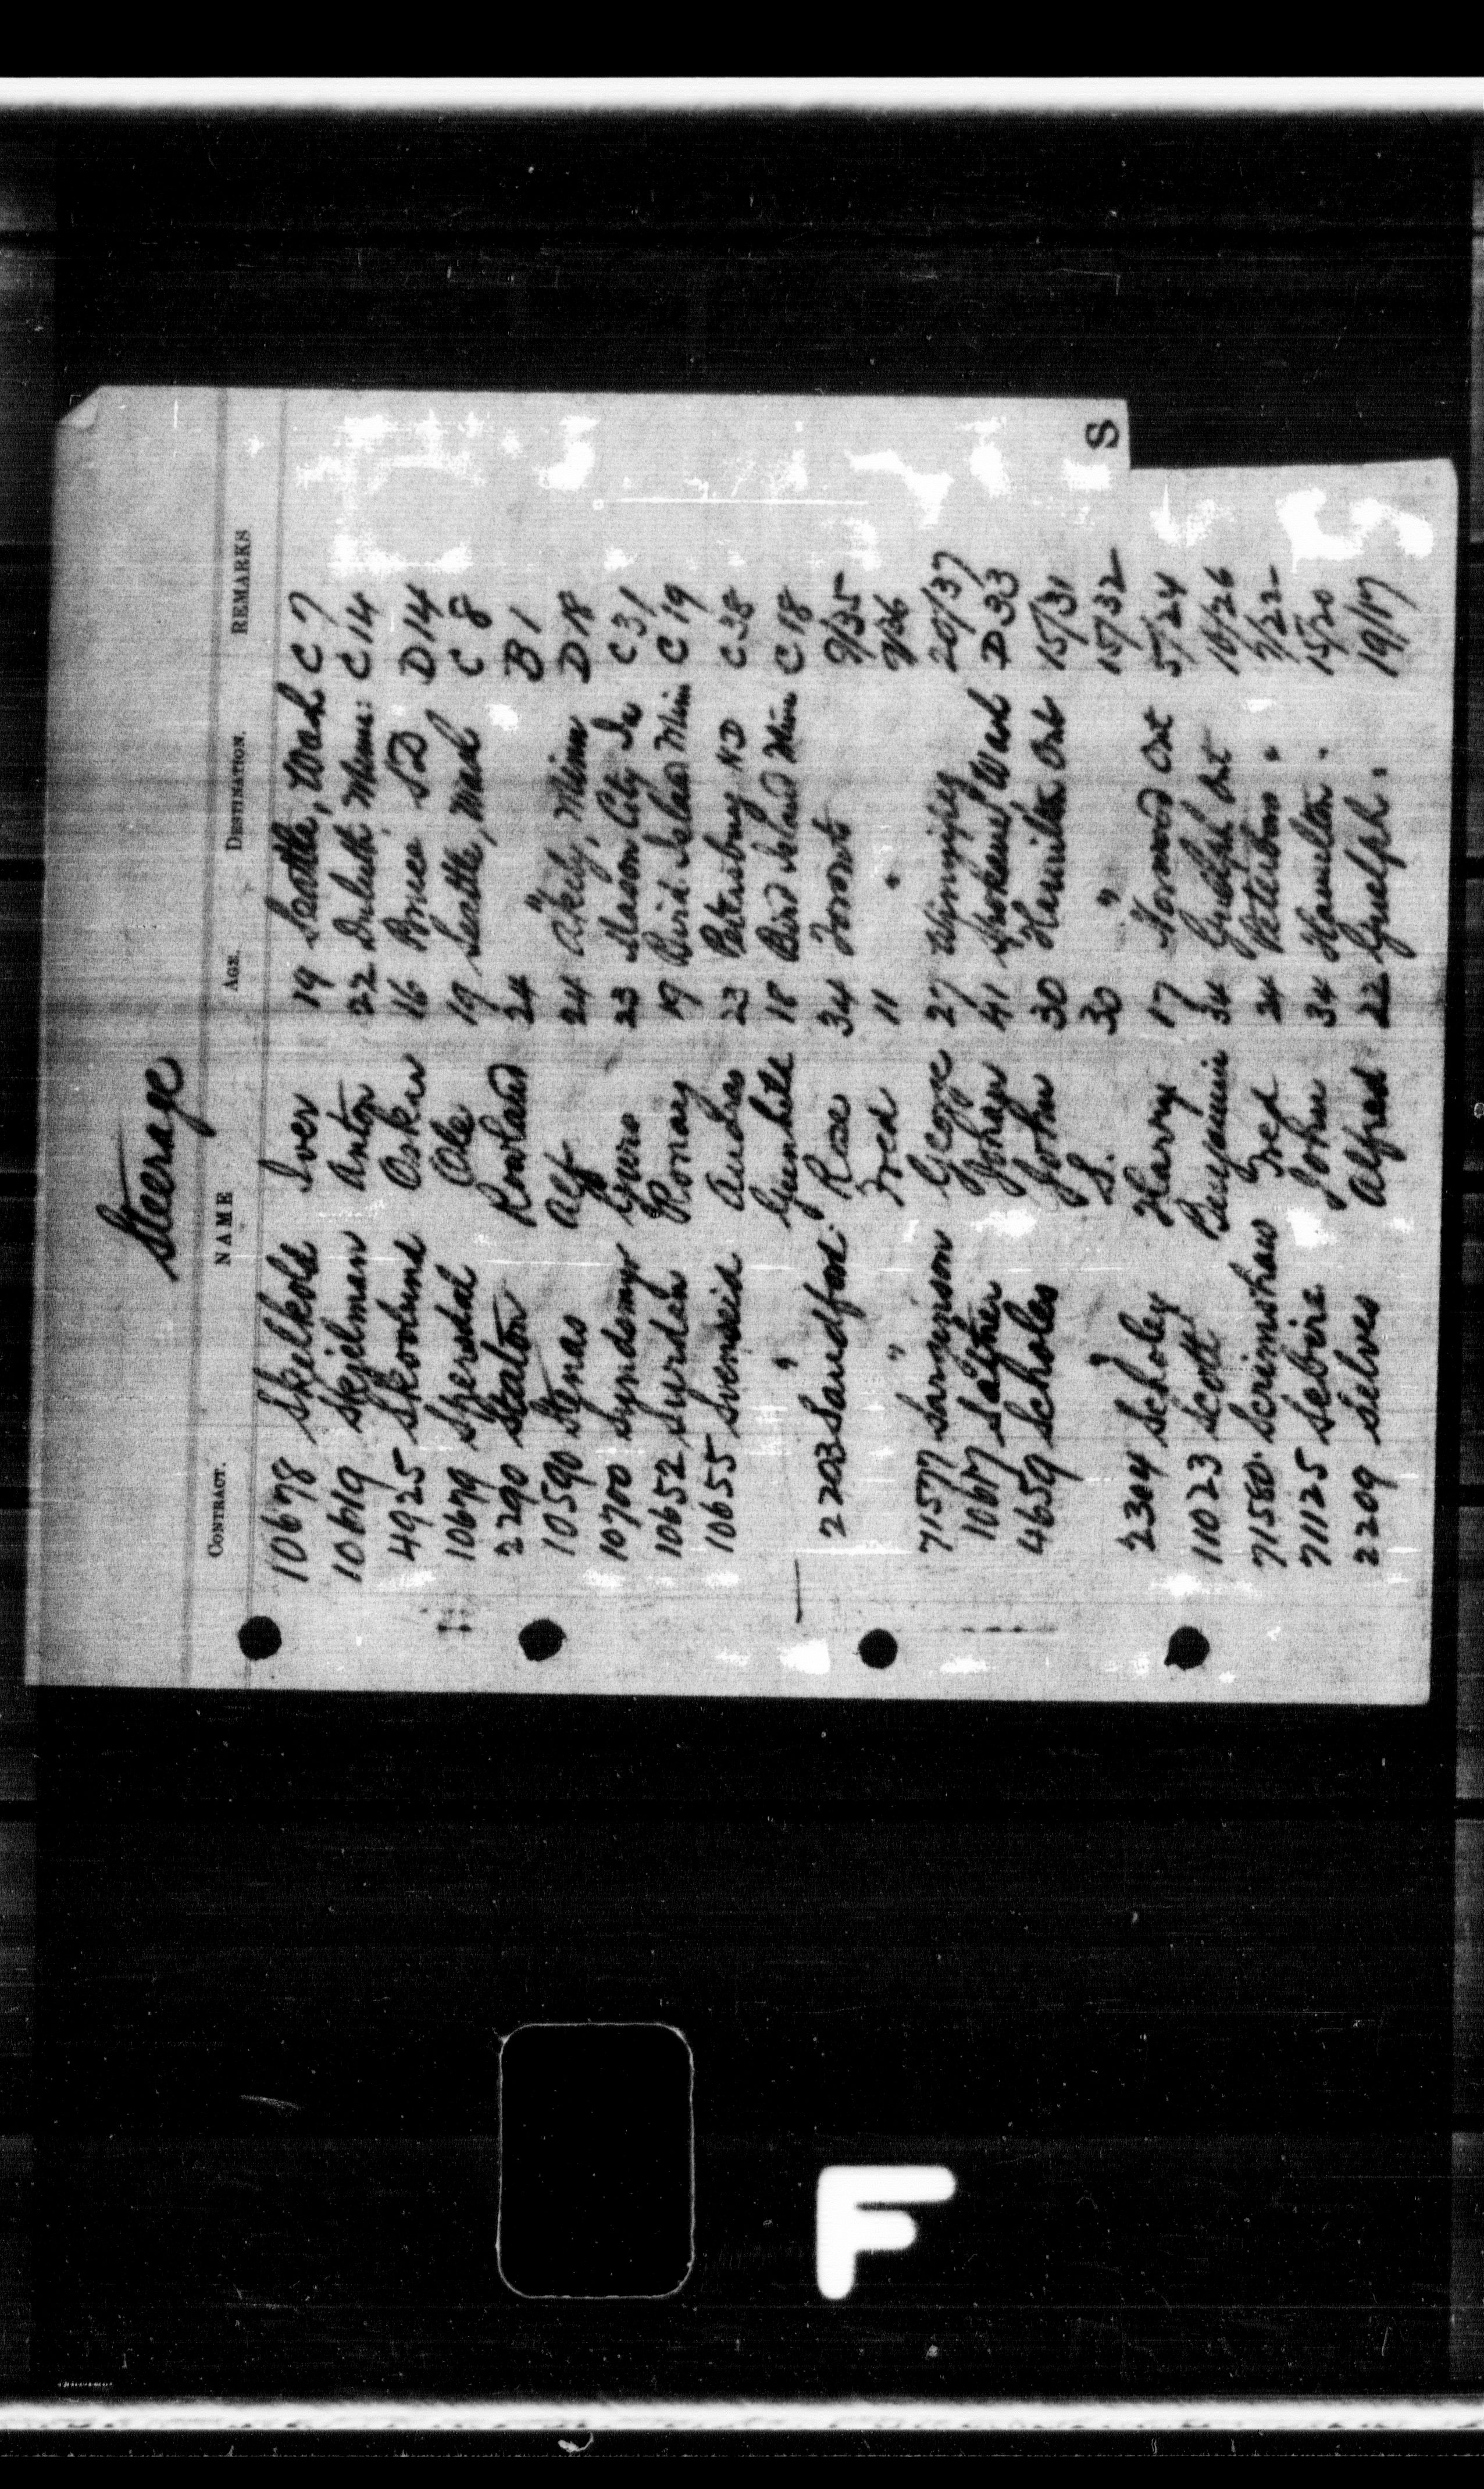 Steerage
CONTRACT. NAME AGE. DESTINATION. REMARKS
10678 Skilkold Iver 19 Seattle, Wash C 7
10619 Skjelman Anton 22 Duluth Minn: C 14
4925 Skoodund Osker 16 Bruce SD D 14
10679 Speredal Ole 19 Seattle, Wash C 8
2290 Seaton Rowland 24 " B 1
10590 Stenas Alf 24 Akely, Minn D 18
10700 Guro 23 Mason City Ia C 31
10652 Ronay 19 Bird Island Minn C 19
10655 Andres 23 Petersburg ND C 38
" Gunhild 18 Bird Island Minn C 18
2203 Sandford Rose 34 Toronto 9/35
" Fred 11 " 9/36
71577 George 27 Winnipeg 20/37
10617 Johan 41 Spokane Wash D 33
4659 Scholes John 30 Hamilton Ont 15/31
" S. 30 " 15/32
2304 Scholey Harry 17 Ont 5/24
11023 Scott Benjamin 34 Guelph Ont 10/26
71580 Scrimshaw Fred 24 Peterboro " 7/22
71125 Sebire John 34 Hamilton " 15/20
2209 Selves Alfred 22 Guelph " 19/17
S
F